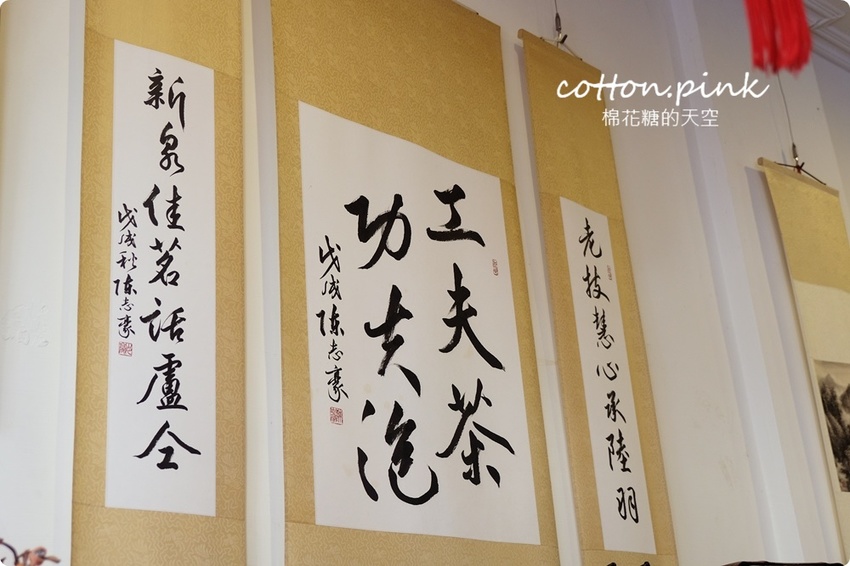 cotton.pink
棉花糖的天空
老技慧心承陸羽
工夫茶
功夫泡
戊戌 陳志豪
新泉佳茗話盧仝
戊戌秋 陳志豪